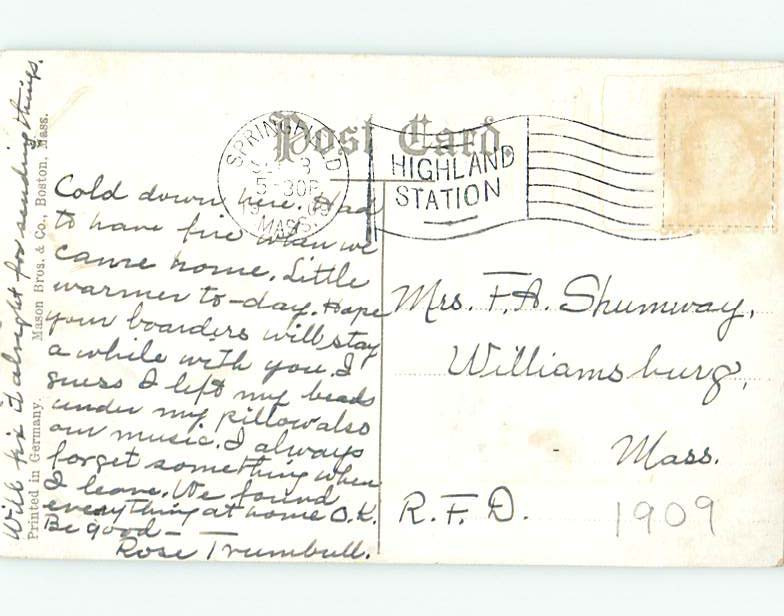 Post Card.
SPRINGFIELD
3
5-30P
MASS.
HIGHLAND
STATION
Cold down here. Had
to have fire when we
came home. Little
warmer to-day. Hope
your boarders will stay
a while with you. I
guess I left my beads
under my pillow also
our music. I always
forget something when
I leave. We found
everything at home O.K.
Be good—
Rose Trumbull.
Will fix it alright for sending things.
Printed in Germany. Mason Bros. & Co., Boston, Mass.
Mrs. F. A. Shumway,
Williamsburg,
Mass.
R. F. D.
1909